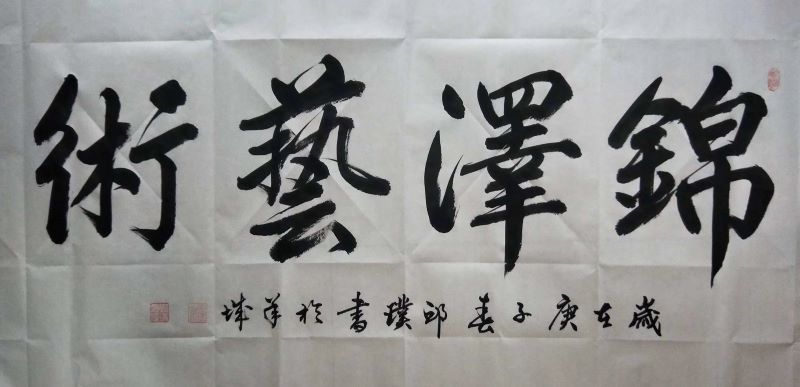 錦澤藝術
歲在庚子春邱璞書於羊城